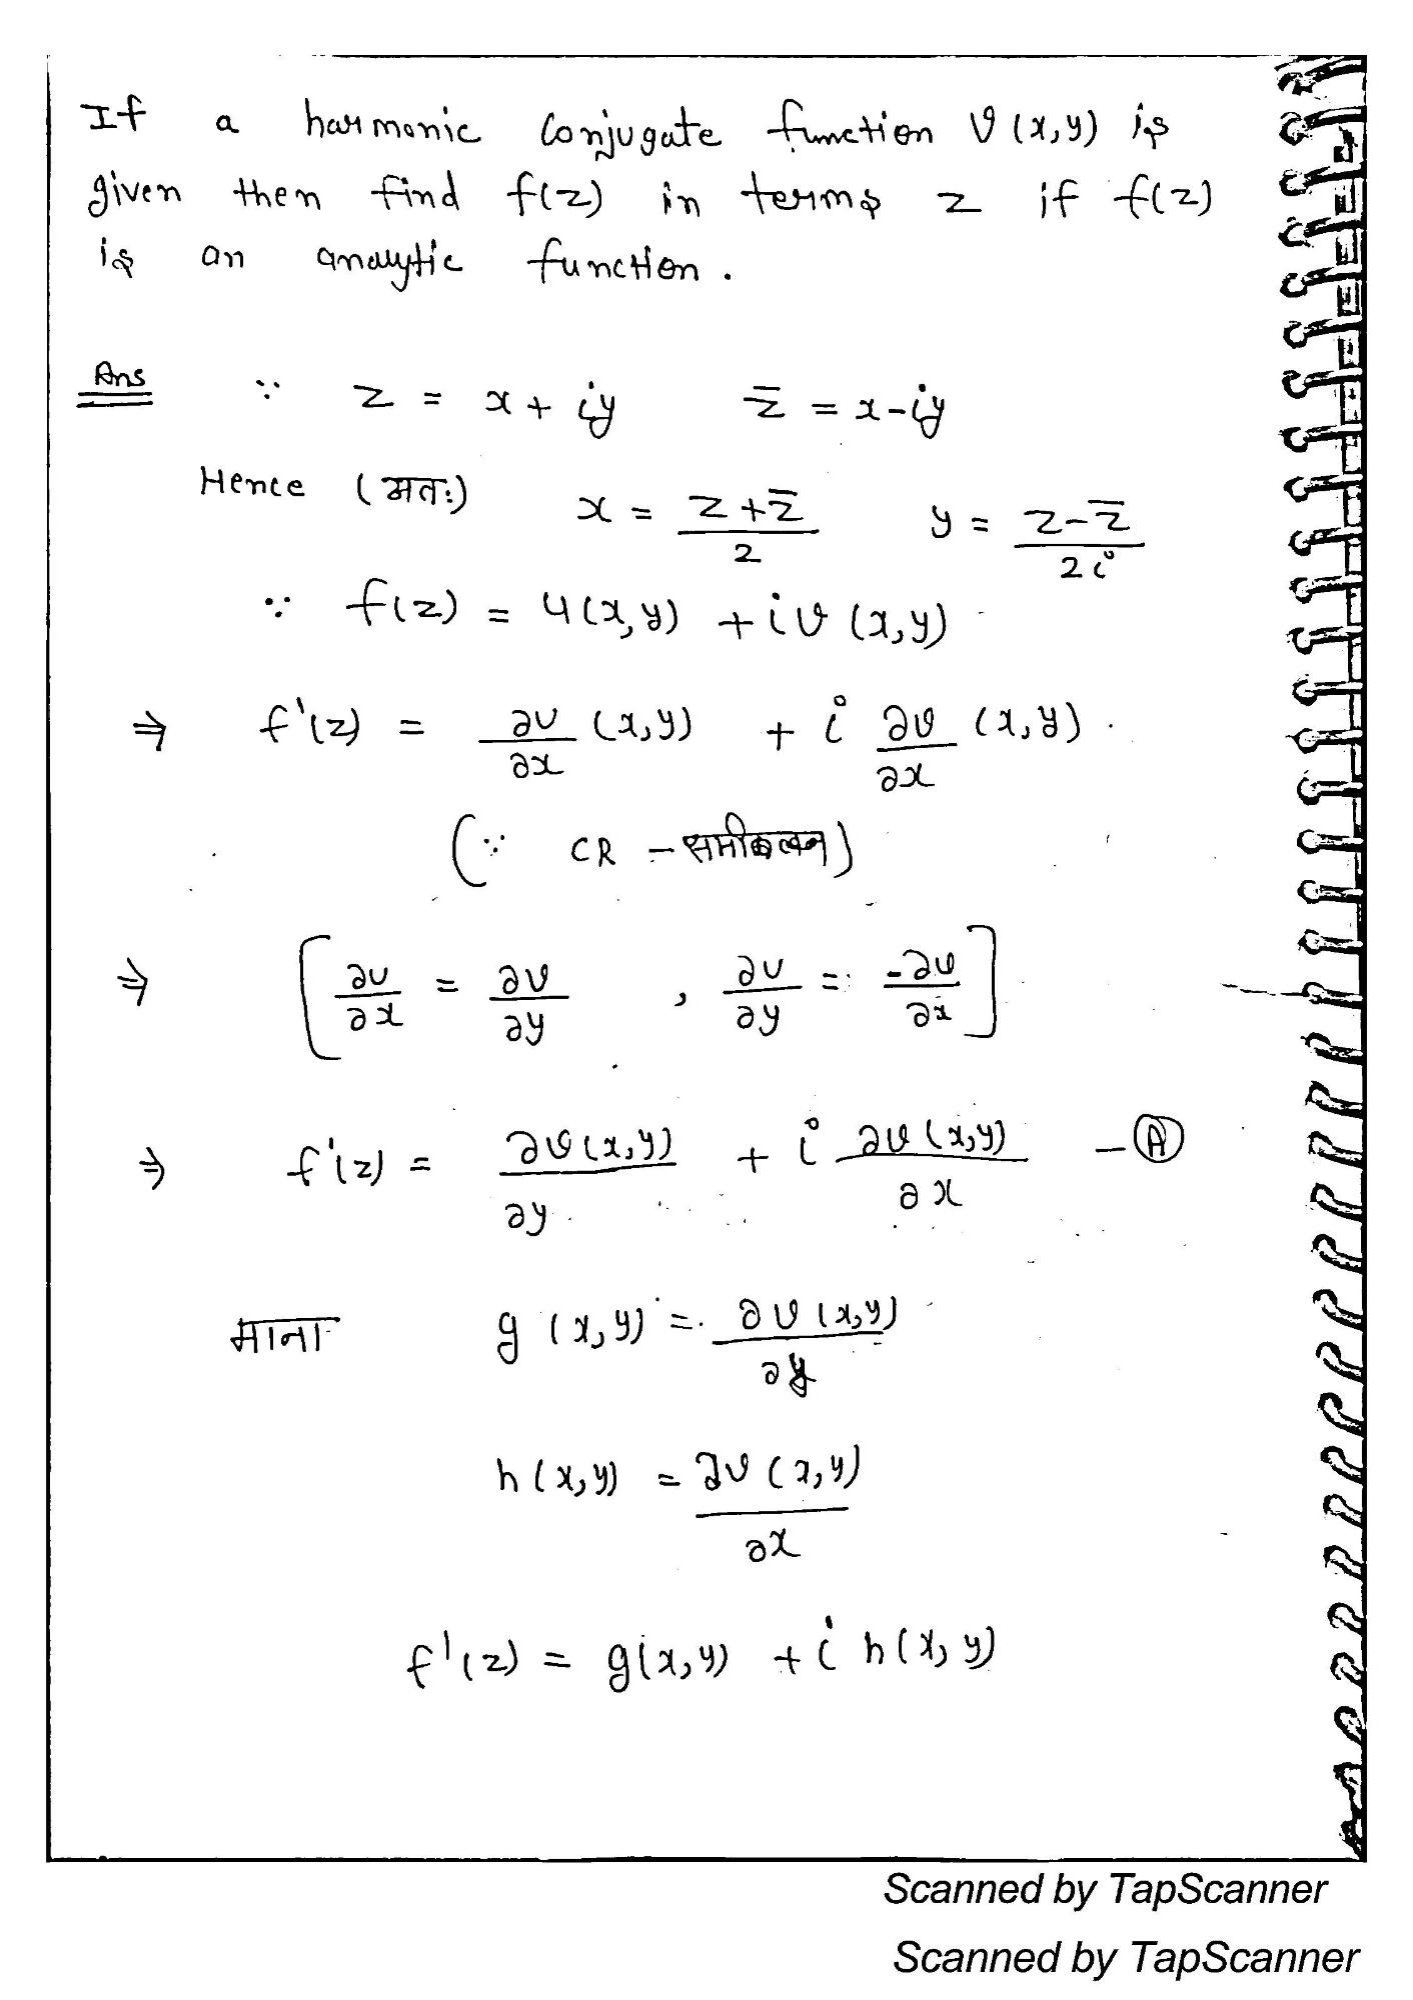 If a harmonic conjugate function v(x,y) is
given then find f(z) in terms z if f(z)
is an analytic function.
Ans ∵ z = x + iy z̄ = x - iy
Hence (अतः) x = (z + z̄)/2 y = (z - z̄)/2i
∵ f(z) = u(x,y) + iv(x,y)
⇒ f'(z) = ∂u/∂x (x,y) + i ∂v/∂x (x,y).
(∵ CR - समीकलन)
⇒ [∂u/∂x = ∂v/∂y , ∂u/∂y = -∂v/∂x]
⇒ f'(z) = ∂v(x,y)/∂y + i ∂v(x,y)/∂x - Ⓐ
माना g(x,y) = ∂v(x,y)/∂y
h(x,y) = ∂v(x,y)/∂x
f'(z) = g(x,y) + i h(x,y)
Scanned by TapScanner
Scanned by TapScanner